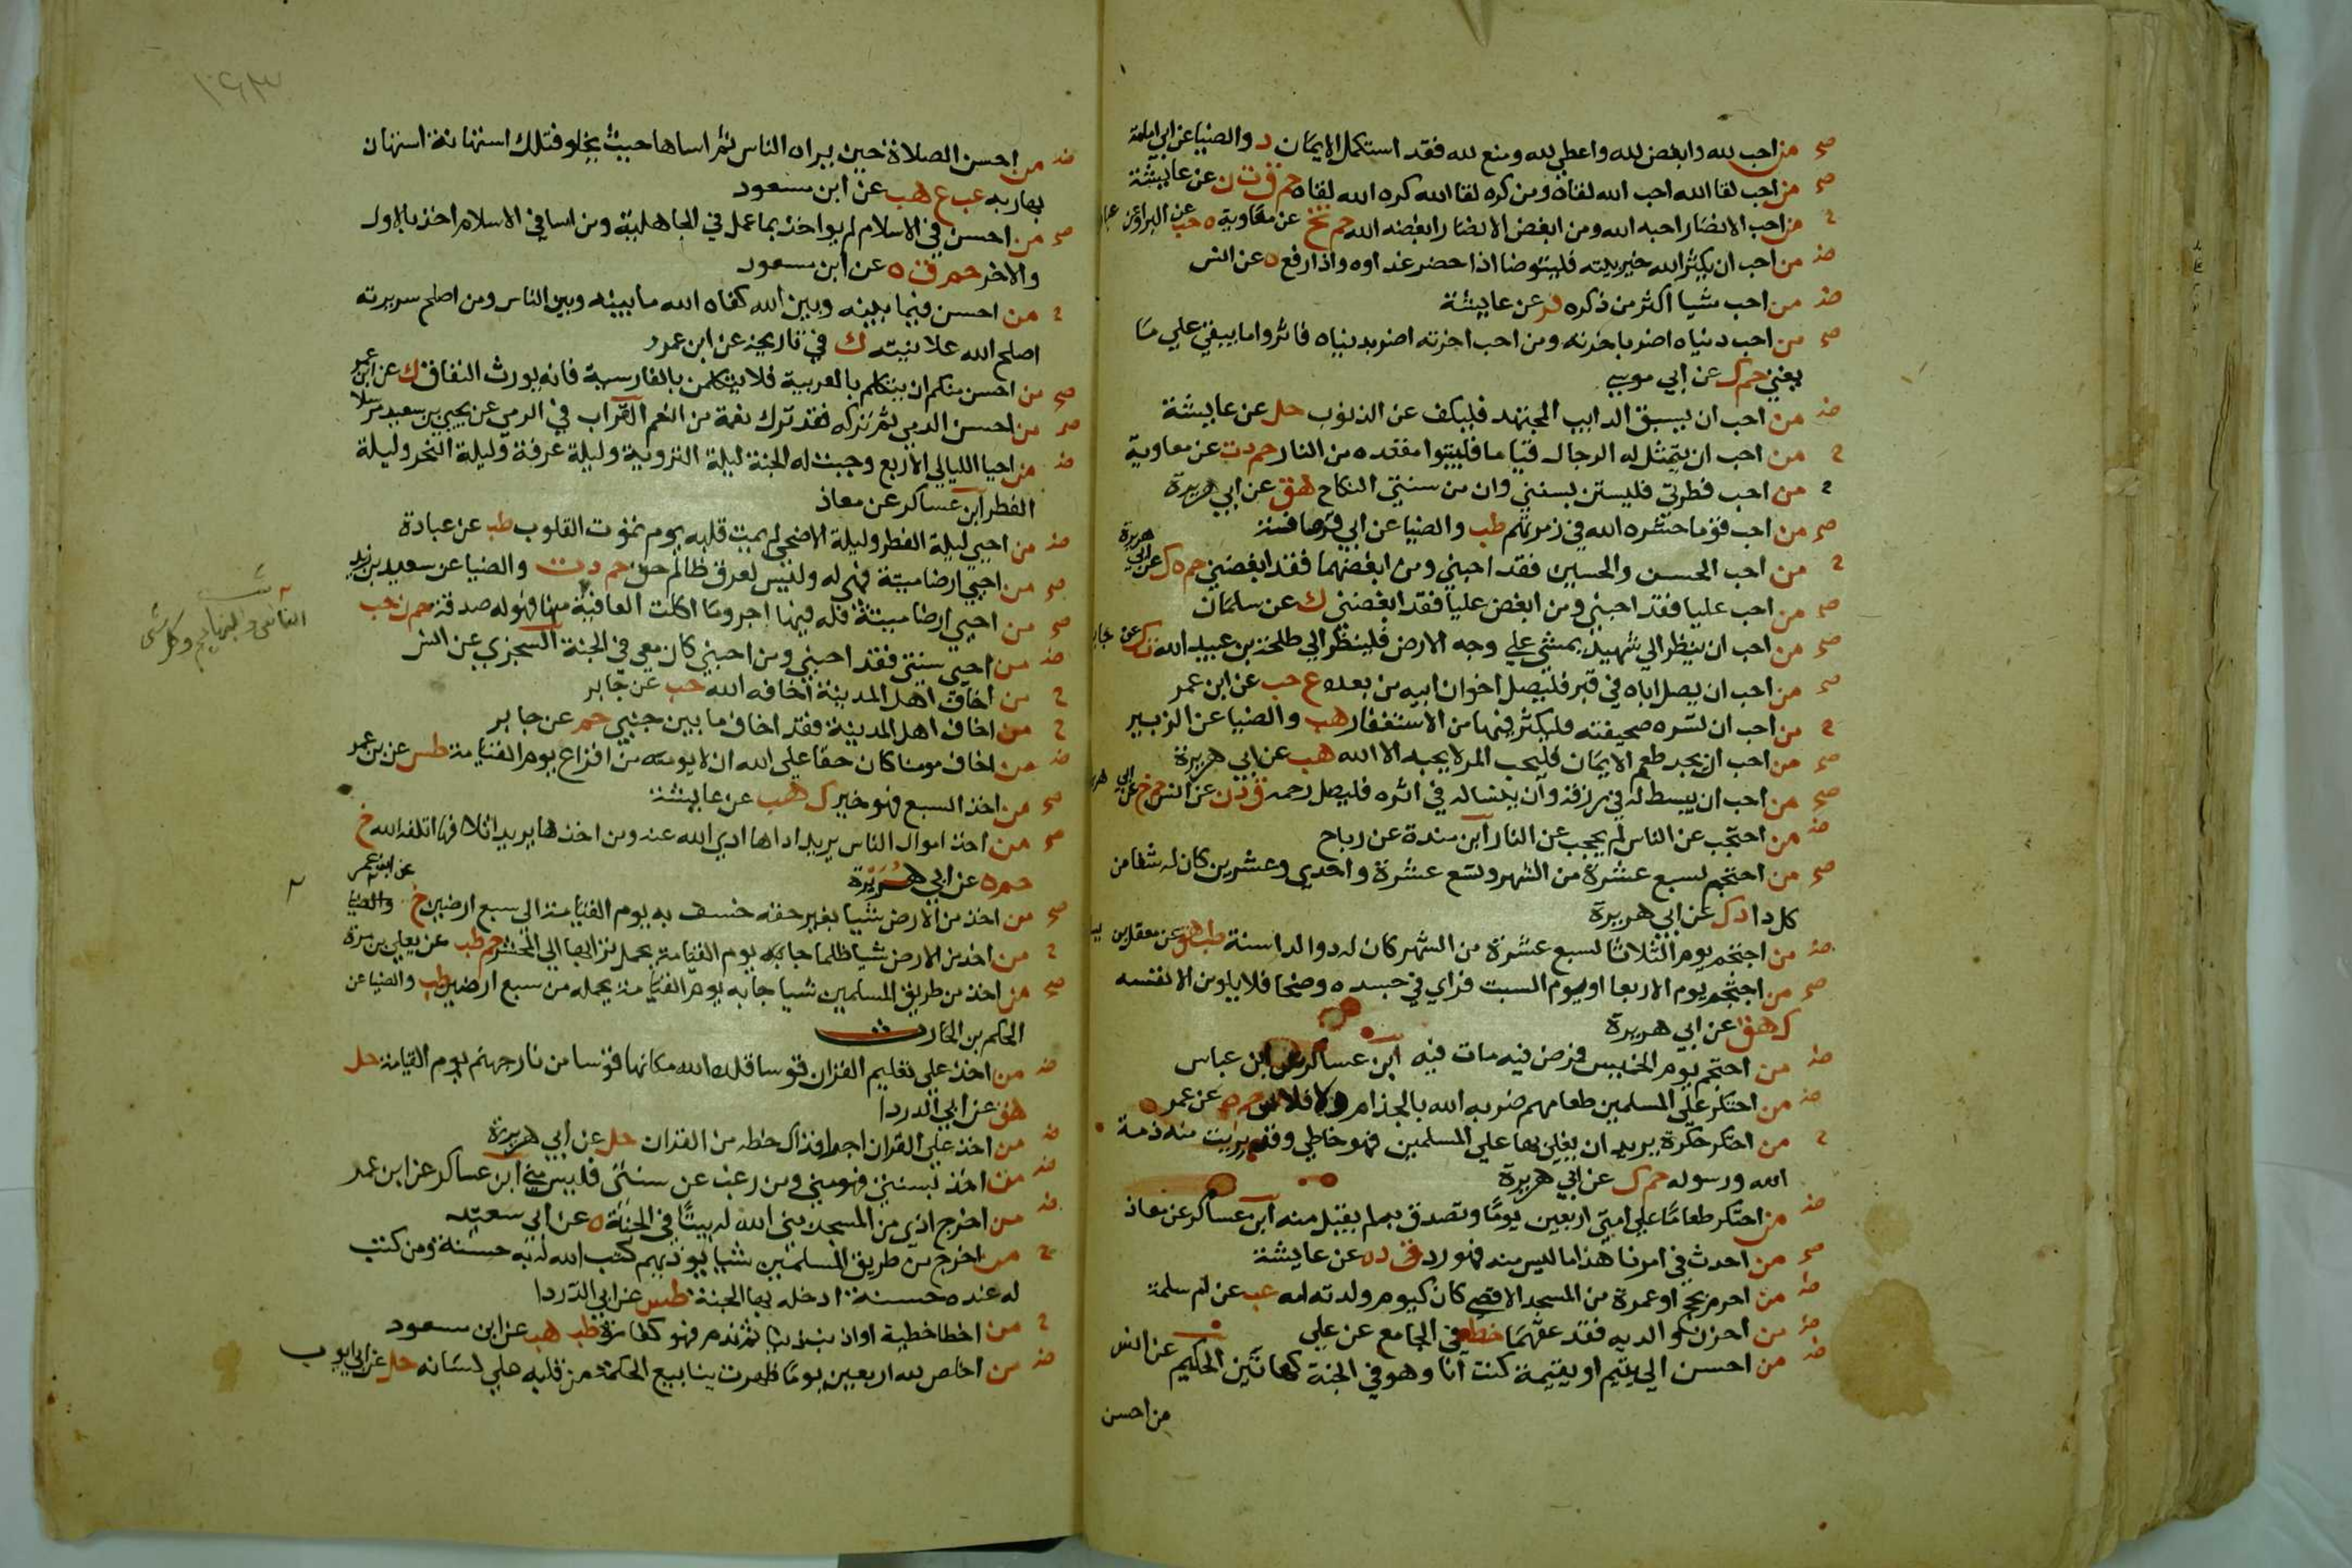 صح من احب لله وابغض لله واعطي لله ومنع لله فقد استكمل الايمان د والضيا عن ابي امامة
صح من احب لقا الله احب الله لقاه ومن كره لقا الله كره الله لقاه حم ق ت ن عن عايشة
ح من احب الانصار احبه الله ومن ابغض الانصار ابغضه الله حم تخ عن معاوية ه حب عن البرا
ض من احب ان يكثر الله خير بيته فليتوضا اذا حضر غداوه واذا رفع ه عن انس
ض من احب شيا اكثر من ذكره فر عن عايشة
صح من احب دنياه اضر باخرته ومن احب اخرته اضر بدنياه فاثروا ما يبقي علي ما
يفني حم ك عن ابي موسي
ض من احب ان يسبق الدايب المجتهد فليكف عن الذنوب حل عن عايشة
ح من احب ان يتمثل له الرجال قياما فليتبوا مقعده من النار حم د ت عن معاوية
ح من احب فطرتي فليستن بسنتي وان من سنتي النكاح هق عن ابي هريرة
صح من احب قوما حشره الله في زمرتهم طب والضيا عن ابي قرصافة
ح من احب الحسن والحسين فقد احبني ومن ابغضهما فقد ابغضني حم ه ك عن ابي هريرة
صح من احب عليا فقد احبني ومن ابغض عليا فقد ابغضني ك عن سلمان
صح من احب ان ينظر الي شهيد يمشي علي وجه الارض فلينظر الي طلحة بن عبيد الله ت ك عن جابر
صح من احب ان يصل اباه في قبره فليصل اخوان ابيه من بعده ع حب عن ابن عمر
ح من احب ان تسره صحيفته فليكثر فيها من الاستغفار هب والضيا عن الزبير
صح من احب ان يجد طعم الايمان فليحب المرء لا يحبه الا لله هب عن ابي هريرة
صح من احب ان يبسط له في رزقه وان ينسا له في اثره فليصل رحمه ق د ن عن انس حم خ عن ابي هر
ض من احتجب عن الناس لم يحجب عن النار ابن مندة عن رباح
صح من احتجم لسبع عشرة من الشهر وتسع عشرة واحدي وعشرين كان له شفا من
كل دا د ك عن ابي هريرة
ض من احتجم يوم الثلاثا لسبع عشرة من الشهر كان له دوا لدا سنة طب هق عن معقل بن
صح من احتجم يوم الاربعا او يوم السبت فراي في جسده وضحا فلا يلومن الا نفسه
ك هق عن ابي هريرة
ض من احتجم يوم الخميس فمرض فيه مات فيه ابن عساكر عن ابن عباس
ض من احتكر علي المسلمين طعامهم ضربه الله بالجذام والافلاس حم ه عن عمر
ح من احتكر حكرة يريد ان يغلي بها علي المسلمين فهو خاطي وقد بريت منه ذمة
الله ورسوله حم ك عن ابي هريرة
ض من احتكر طعاما علي امتي اربعين يوما وتصدق به لم يقبل منه ابن عساكر عن معاذ
صح من احدث في امرنا هذا ما ليس منه فهو رد ق د ه عن عايشة
ض من احرم بحج او عمرة من المسجد الاقصي كان كيوم ولدته امه عب عن ام سلمة
ض من احزن والديه فقد عقهما خط في الجامع عن علي
ض من احسن الي يتيم او يتيمة كنت انا وهو في الجنة كهاتين الحكيم عن انس
من احسن
ض من احسن الصلاة حين يراه الناس ثم اساها حيث يخلو فتلك استهانة استهان
بها ربه عب ع هب عن ابن مسعود
صح من احسن في الاسلام لم يواخذ بما عمل في الجاهلية ومن اسا في الاسلام اخذ بالاول
والاخر حم ق ه عن ابن مسعود
ح من احسن فيما بينه وبين الله كفاه الله ما بينه وبين الناس ومن اصلح سريرته
اصلح الله علانيته ك في تاريخه عن ابن عمرو
صح من احسن منكم ان يتكلم بالعربية فلا يتكلمن بالفارسية فانه يورث النفاق ك عن ابن عمر
صح من احسن الرمي ثم تركه فقد ترك نعمة من النعم القراب في الرمي عن يحيي بن سعيد مرسلا
ض من احيا الليالي الاربع وجبت له الجنة ليلة التروية وليلة عرفة وليلة النحر وليلة
الفطر ابن عساكر عن معاذ
ض من احيي ليلة الفطر وليلة الاضحي لم يمت قلبه يوم تموت القلوب طب عن عبادة
صح من احيي ارضا ميتة فهي له وليس لعرق ظالم حق حم د ت والضيا عن سعيد بن زيد
صح من احيي ارضا ميتة فله فيها اجر وما اكلت العافية منها فهو له صدقة حم ن حب
ض من احيي سنتي فقد احبني ومن احبني كان معي في الجنة السجزي عن انس
ح من اخاف اهل المدينة اخافه الله حب عن جابر
ح من اخاف اهل المدينة فقد اخاف ما بين جنبي حم عن جابر
ض من اخاف مومنا كان حقا علي الله ان لا يومنه من افزاع يوم القيامة طس عن بن عمر
صح من اخذ السبع فهو خير ك هب عن عايشة
صح من اخذ اموال الناس يريد اداها ادي الله عنه ومن اخذها يريد اتلافها اتلفه الله خ
حم ه عن ابي هريرة
صح من اخذ من الارض شيا بغير حقه خسف به يوم القيامة الي سبع ارضين خ عن ابن عمر
ح من اخذ من الارض شيا ظلما جا به يوم القيامة يحمل ترابها الي المحشر حم طب عن يعلي بن مرة
صح من اخذ من طريق المسلمين شيا جا به يوم القيامة يحمله من سبع ارضين طب والضيا عن
الحكم بن الحارث
ض من اخذ علي تعليم القران قوسا قلده الله مكانها قوسا من نار جهنم يوم القيامة حل
هق عن ابي الدردا
ض من اخذ علي القران اجرا فذاك حظه من القران حل عن ابي هريرة
ض من اخذ بسنتي فهو مني ومن رغب عن سنتي فليس مني ابن عساكر عن ابن عمر
ض من اخرج اذي من المسجد بني الله له بيتا في الجنة ه عن ابي سعيد
ح من اخرج من طريق المسلمين شيا يوذيهم كتب الله له به حسنة ومن كتب
له عنده حسنة ادخله بها الجنة طس عن ابي الدردا
ح من اخطا خطية او اذنب ذنبا ثم ندم فهو كفارة طب هب عن ابن مسعود
ض من اخلص لله اربعين يوما ظهرت ينابيع الحكمة من قلبه علي لسانه حل عن ابي ايوب